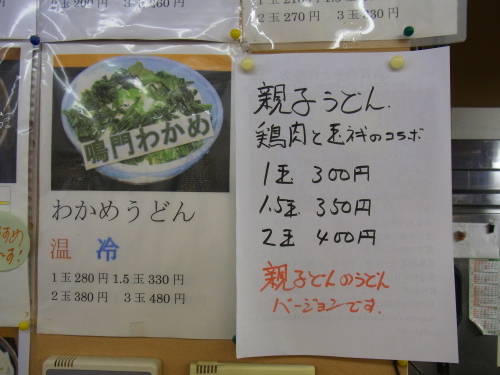 2玉 200円 3玉 260円
2玉 270円 3玉 330円
鳴門わかめ
わかめうどん
温 冷
1玉280円 1.5玉330円
2玉380円 3玉480円
親子うどん.
鶏肉と玉子のコラボ
1玉 300円
1.5玉 350円
2玉 400円
親子どんのうどん
バージョンです.